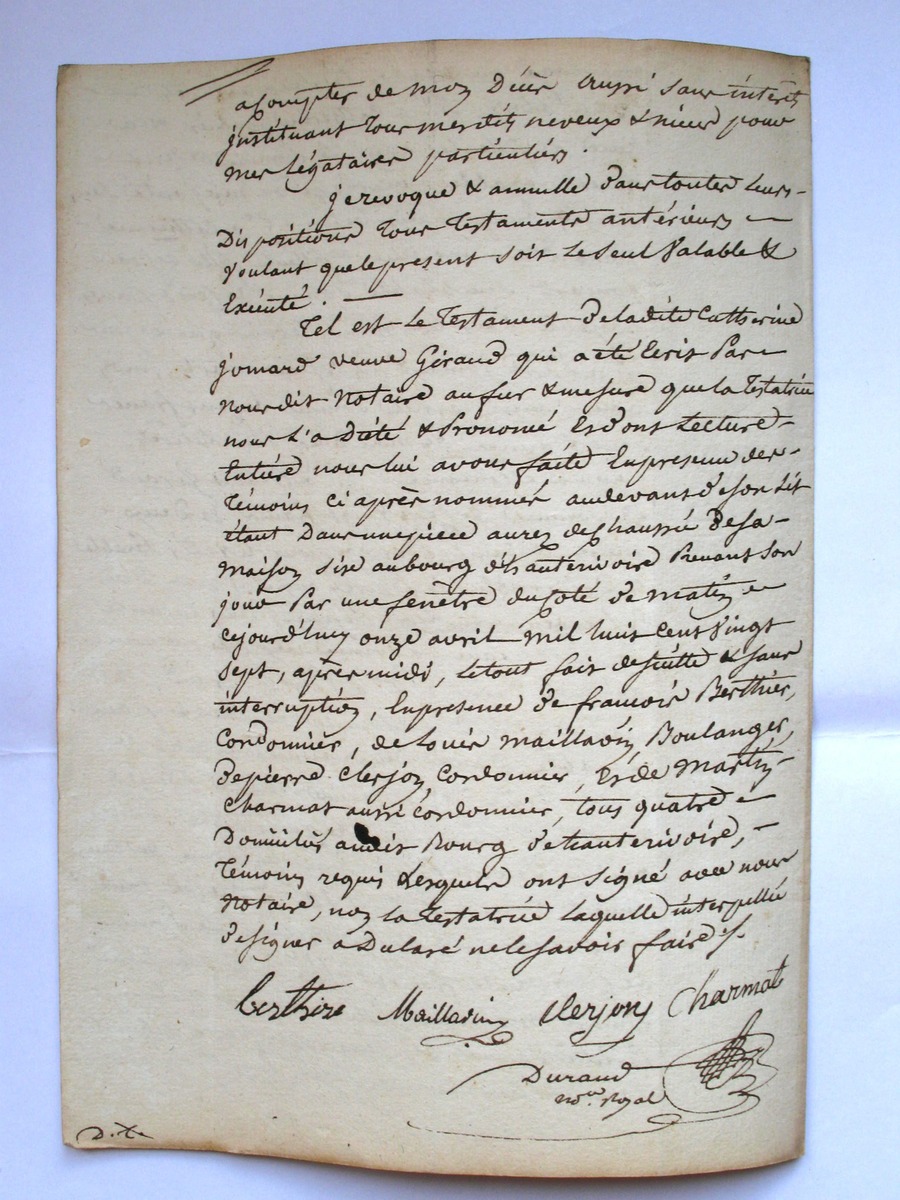 a Compter de mon Décès aussi sans intérêts
instituant tous mesdits neveux & nièces pour
mes légataires particuliers.
je revoque & annulle dans toutes leurs
Dispositions tous testaments antérieurs
voulant que le present soit le seul valable &
Exécuté.
Tel est le Testament de ladite Catherine
jomard veuve Giraud qui a été Ecrit Par
nous dit Notaire au fur & mesure que la Testatrice
nous l'a Dicté & Prononcé Et dont Lecture
Entière nous lui avons faite En presence des
Témoins ci après nommés au devant de son Lit
étant Dans une pièce au rez de Chaussée de sa
maison sise au bourg d'hauterivoire Prenant son
jour Par une fenêtre du Coté de matin
cejourd'huy onze avril mil huit Cent Vingt
sept, après midi, le tout fait de suitte & sans
interruption, En presence de françois Berthier,
Cordonnier, de Louis Mailladin Boulanger,
de pierre Clerjon Cordonnier, Et de Martin
Charmat aussi Cordonnier, tous quatre
Domiciliés audit Bourg d'hauterivoire,
Témoins requis Lesquels ont signé avec nous
Notaire, non la Testatrice laquelle interpellée
de signer a Déclaré ne le savoir faire ./.
berthier Mailladin Clerjon Charmat
Durand
no.re Royal